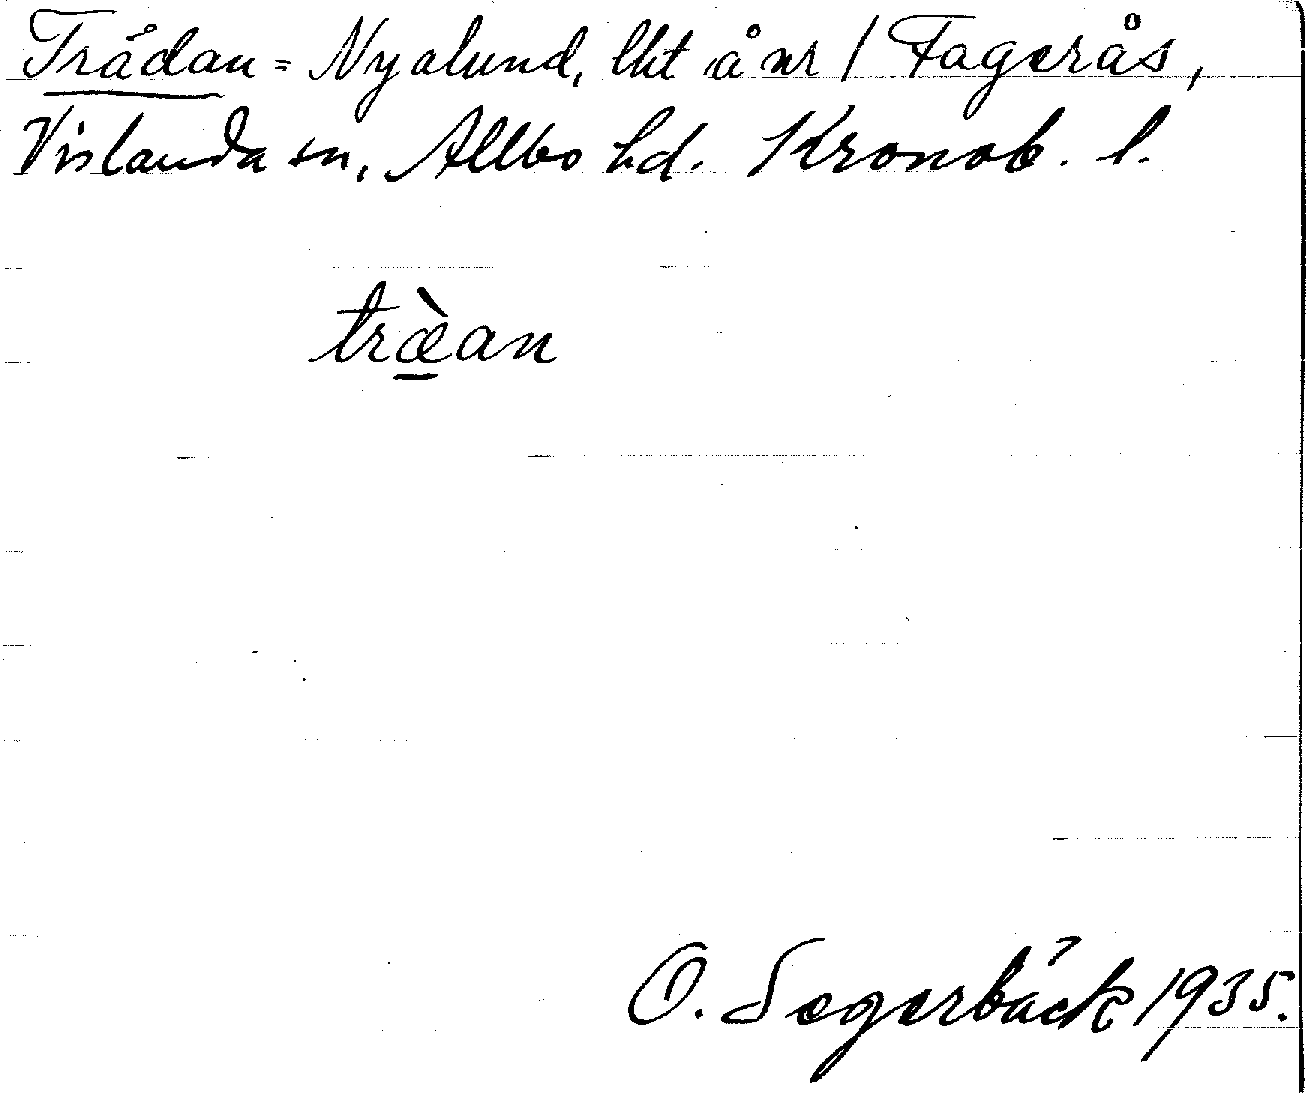 Trådan = Nyalund, lht å nr 1 Fagerås,
Vislanda sn, Allbo hd. Kronob. l.
træ̀an
O. Segerbäck 1935.